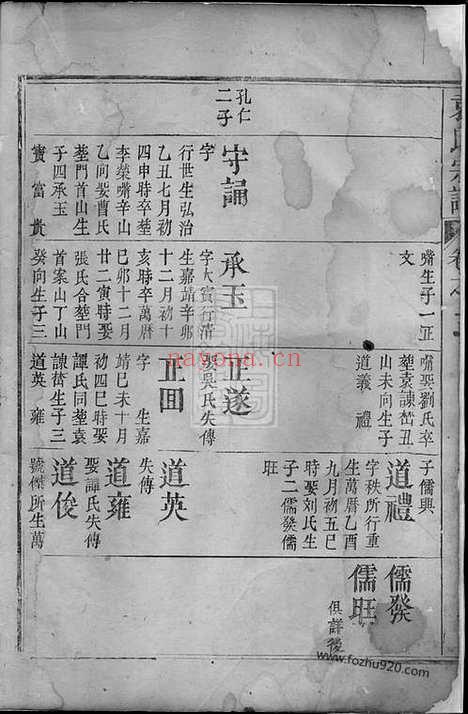 孔仁
二子
守誦
字
行世生弘治
乙丑七月初
四申時卒塟
李榮嘴辛山
乙向娶曹氏
塟門首山生
子四承玉
寳富貴
承玉
字大賓行清
生嘉靖辛酉
十二月初十
亥時卒萬曆
己卯十二月
廿二寅時娶
張氏合塟門
首家山丁山
癸向生子三
嘴生子一正
文
正遂
娶吳氏失傳
正囬
字 生嘉
靖巳未十月
初四巳時娶
譚氏同塟袁
諫嵆生子三
道英 雍
嘴娶劉氏卒
塟袁諫嵆丑
山未向生子
道義禮
道英
失傳
道雍
娶譚氏失傳
道俊
號傑所生萬
子儒興
道禮
字秩所行重
生萬曆乙酉
九月初五巳
時娶刘氏生
子二儒發儒
旺
儒發
儒旺
俱詳後
袁氏宗譜
nayona.cn
www.fozhu920.com